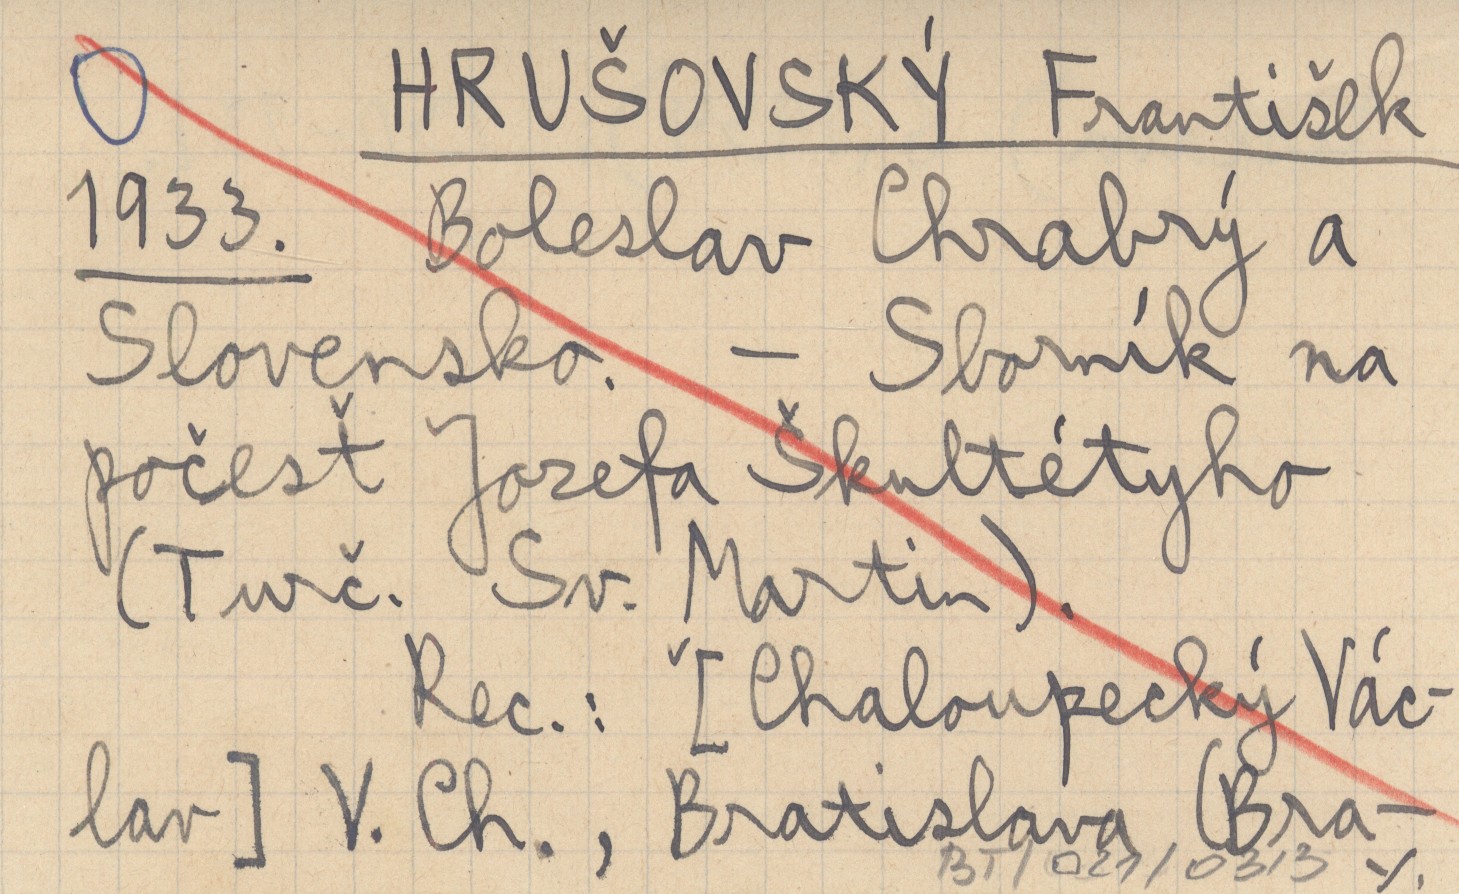 HRUŠOVSKÝ František
1933. Boleslav Chrabrý a
Slovensko. – Sborník na
počesť Jozefa Škultétyho
(Turč. Sv. Martin).
Rec.: [Chaloupecký Vác-
lav] V. Ch., Bratislava (Bra-
BT/021/0313 ./.